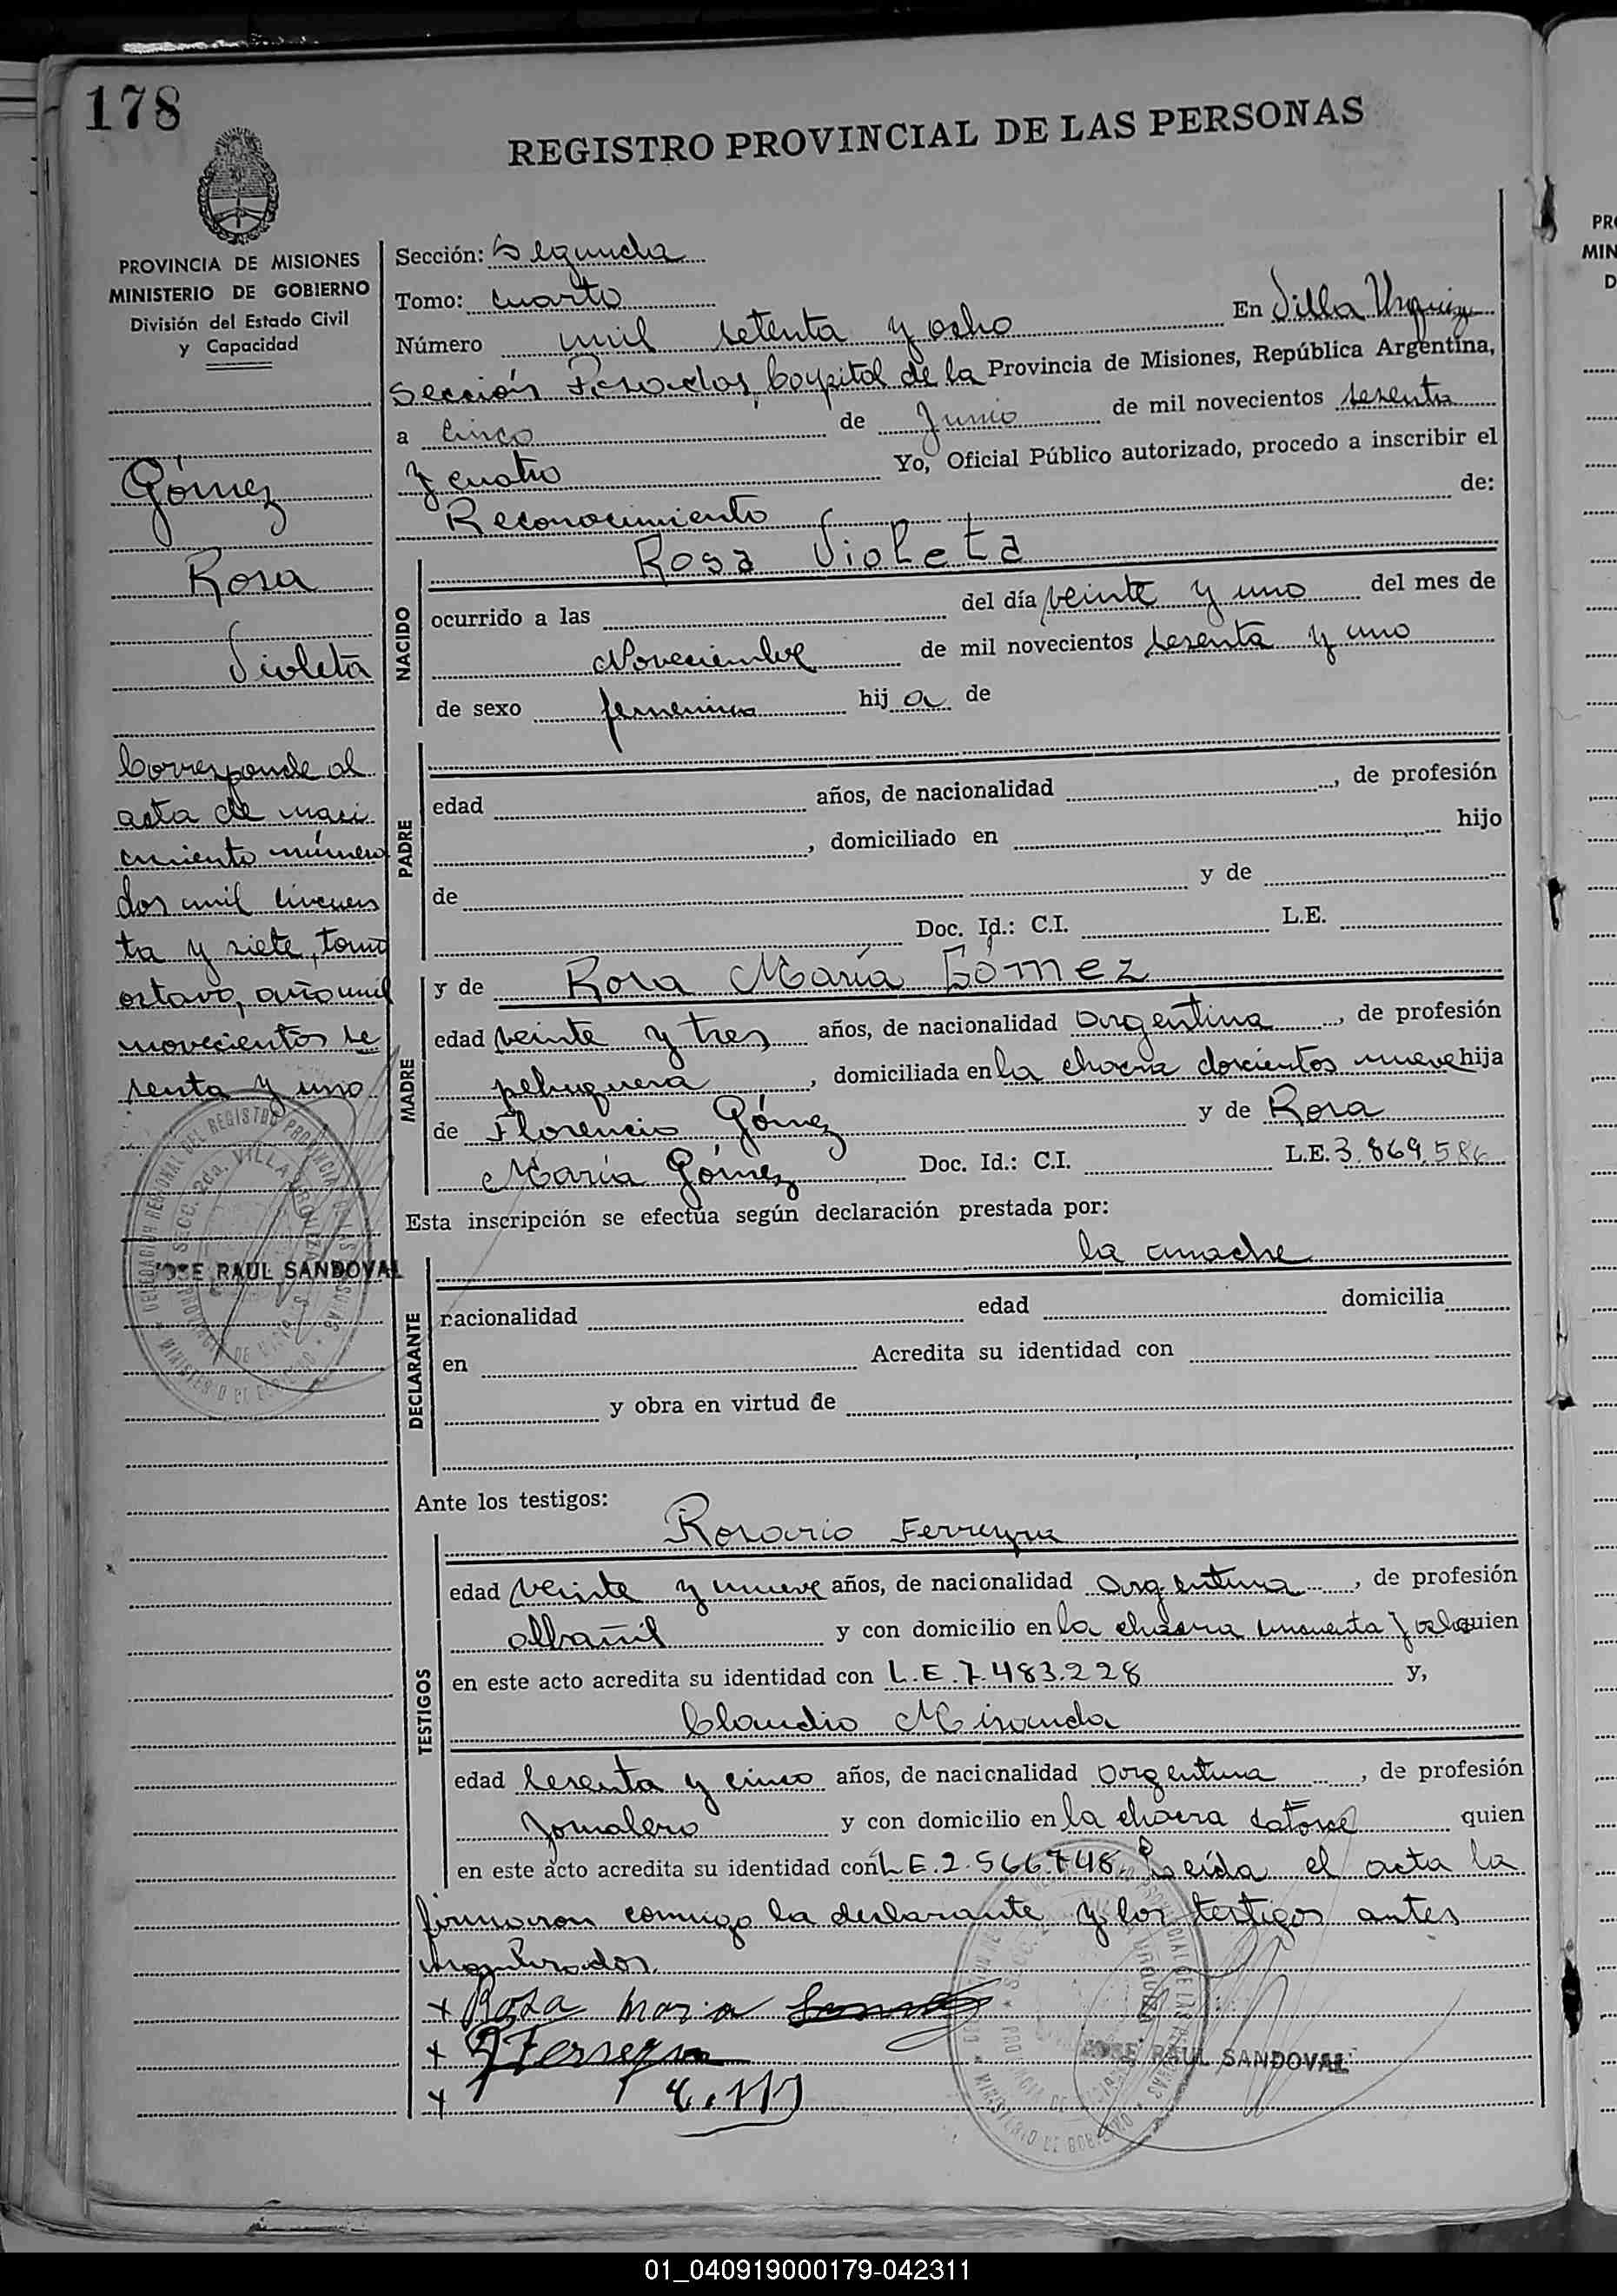 178
REGISTRO PROVINCIAL DE LAS PERSONAS
PROVINCIA DE MISIONES
MINISTERIO DE GOBIERNO
División del Estado Civil
y Capacidad
Gómez
Rosa
Violeta
Corresponde al
acta de naci
miento número
dos mil cincuen
ta y siete, tomo
octavo, año mil
novecientos se
senta y uno
JOSE RAUL SANDOVAL
Sección: Segunda
Tomo: cuarto
Número mil setenta y ocho En Villa Urquiza
Sección Posadas, Capital de la Provincia de Misiones, República Argentina,
a Cinco de Junio de mil novecientos sesenta
y cuatro Yo, Oficial Público autorizado, procedo a inscribir el
Reconocimiento de:
NACIDO
Rosa Violeta
ocurrido a las del día veinte y uno del mes de
Noveciembre de mil novecientos sesenta y uno
de sexo femenino hij a de
PADRE
edad años, de nacionalidad , de profesión
, domiciliado en hijo
de y de
Doc. Id.: C.I. L.E.
MADRE
y de Rosa María Gómez
edad veinte y tres años, de nacionalidad argentina , de profesión
peluquera , domiciliada en la chacra doscientos nueve hija
de Florencio Gómez y de Rosa
María Gómez Doc. Id.: C.I. L.E. 3.869.586
Esta inscripción se efectúa según declaración prestada por:
DECLARANTE
la madre
nacionalidad edad domicilia
en Acredita su identidad con
y obra en virtud de
Ante los testigos:
TESTIGOS
Rosario Ferreyra
edad veinte y nueve años, de nacionalidad argentina , de profesión
albañil y con domicilio en la chacra cincuenta y ocho quien
en este acto acredita su identidad con L.E.7.483.228 y,
Claudio Miranda
edad sesenta y cinco años, de nacionalidad argentina , de profesión
Jornalero y con domicilio en la chacra catorce quien
en este acto acredita su identidad con L E.2.566.748. Leída el acta la
firmaron conmigo la declarante y los testigos antes
nombrados.
+ Rosa Maria
+ Ferreyra
+ C.M
JOSE RAUL SANDOVAL
PRO
MIN
D
01_040919000179-042311